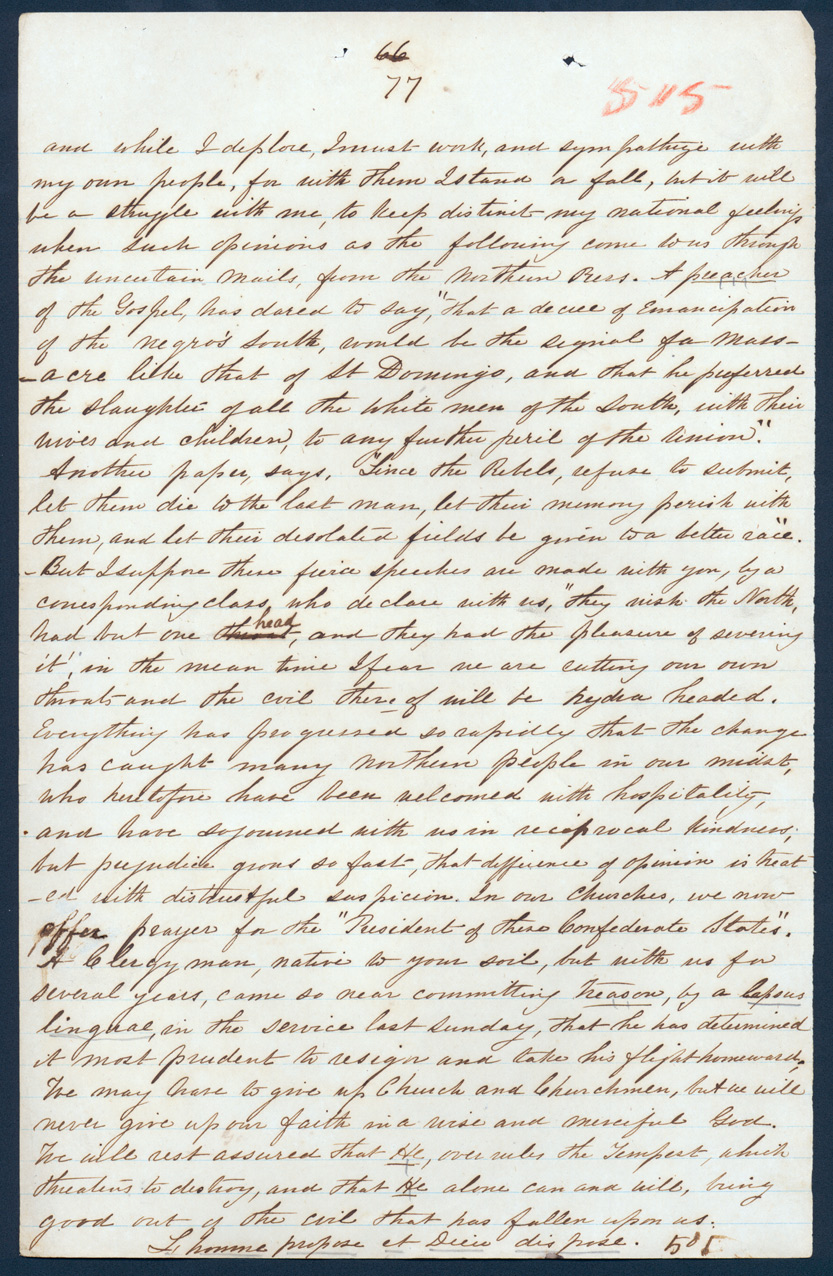 66
77
505
and while I deplore, I must work, and sympathize with
my own people, for with them I stand or fall, but it will
be a struggle with me, to keep distinct my national feelings
when such opinions as the following come to us through
the uncertain mails, from the Northern Press. A preacher
of the Gospel, has dared to say, "that a decree of Emancipation
of the negro's South, would be the signal for a Mass-
-acre like that of St Domingo, and that he preferred
the slaughter of all the white men of the South, with their
wives and children, to any further peril of the Union".
Another paper, says, "Since the Rebels, refuse to submit,
let them die to the last man, let their memory perish with
them, and let their desolated fields be given to a better race".
-But I suppose these fierce speeches are made with you, by a
corresponding class, who declare with us, "they wish the North,
had but one throat head, and they had the pleasure of severing
it", in the mean time I fear we are cutting our own
throats and the evil there of will be hydra headed.
Everything has progressed so rapidly that the change
has caught many Northern people in our midst,
who heretofore have been welcomed with hospitality,
and have sojourned with us in reciprocal kindness,
but prejudice grows so fast, that difference of opinion is treat
-ed with distrustful suspicion. In our Churches, we now
offer prayer for the "President of these Confederate States".
A Clergyman, native to your soil, but with us for
several years, came so near committing Treason, by a lapsus
linguae, in the service last Sunday, that he has determined
it most prudent to resign and take his flight homewards,
We may have to give up Church and Churchmen, but we will
never give up our faith in a wise and merciful God.
We will rest assured that He, over rules the Tempest, which
threatens to destroy, and that He alone can and will, bring
good out of the evil that has fallen upon us.
L'homme propose et Dieu dispose. 505